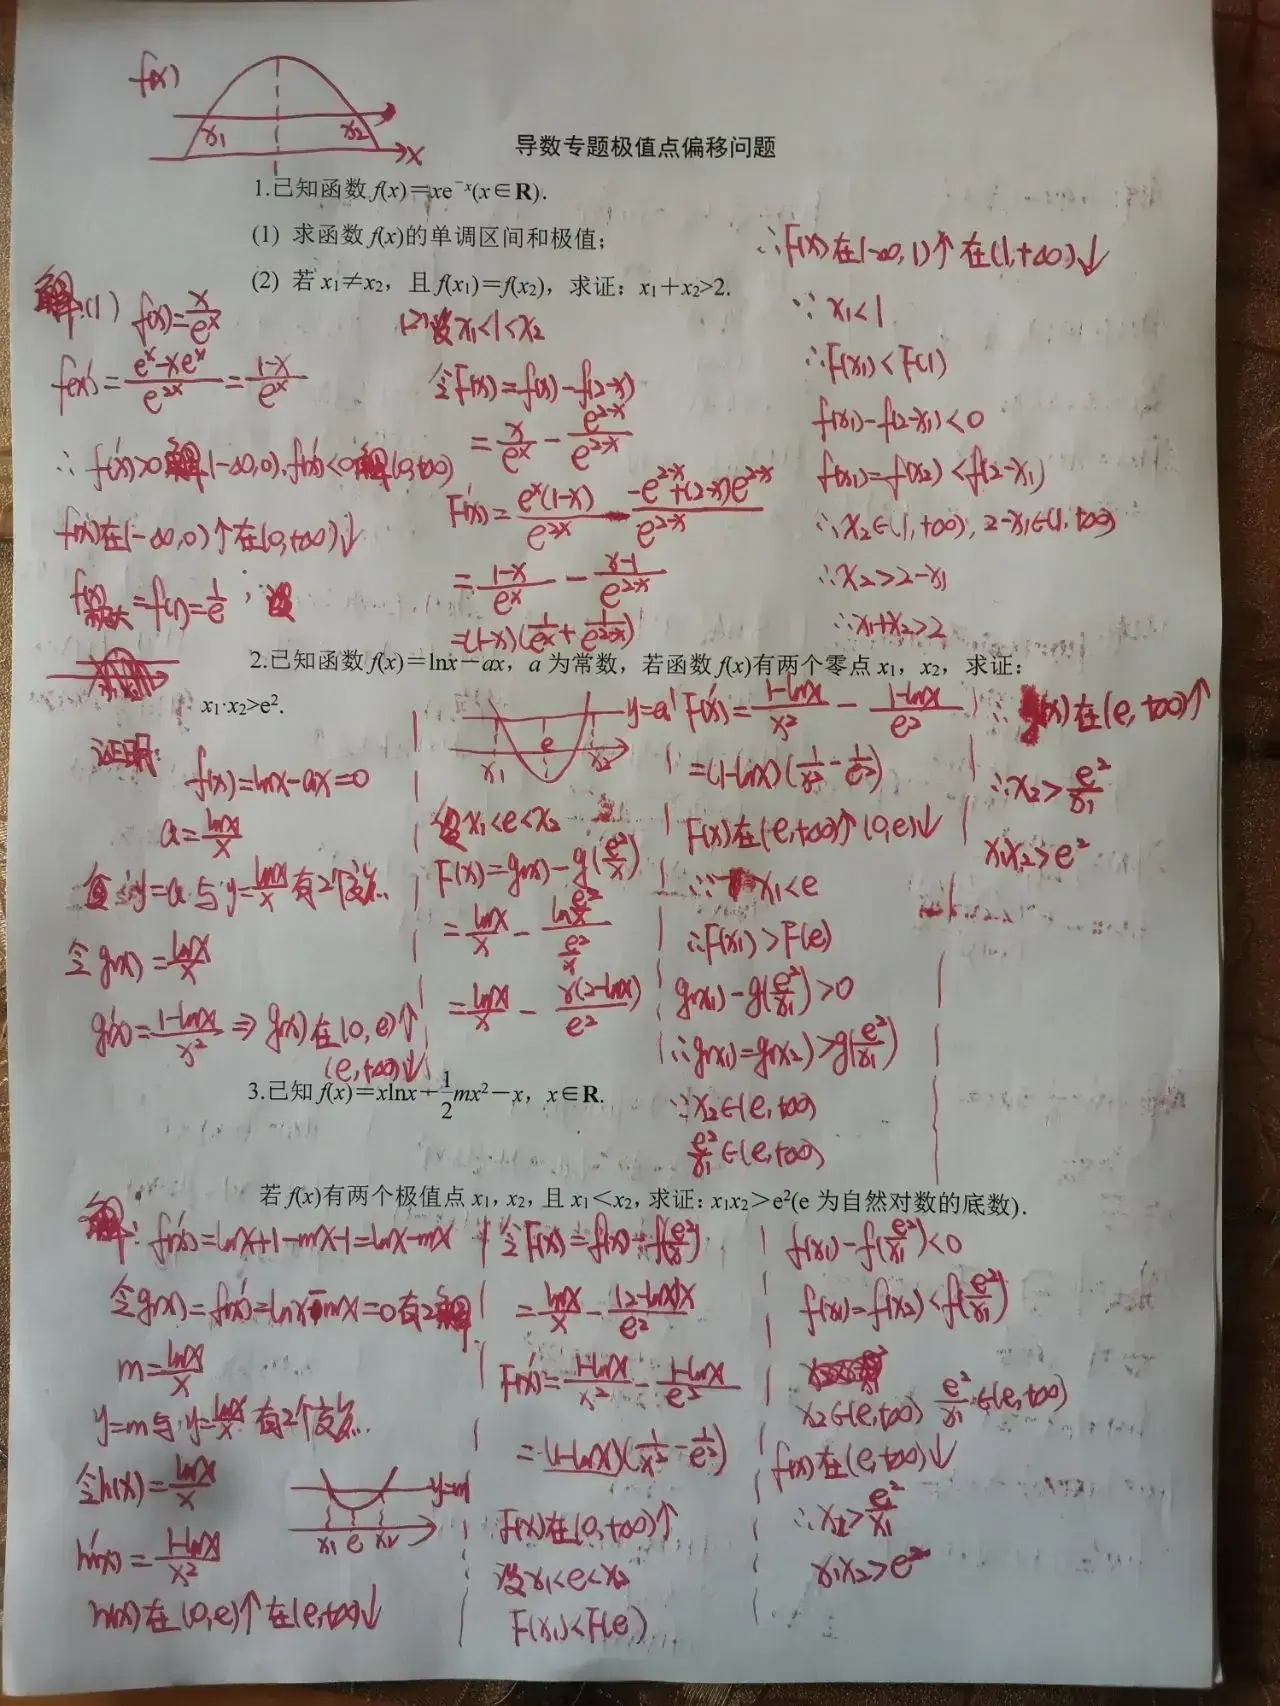 f(x)
x₁ x₂
x
导数专题极值点偏移问题
1.已知函数 f(x)=xe⁻ˣ(x∈R).
(1) 求函数 f(x)的单调区间和极值;
(2) 若 x₁≠x₂, 且 f(x₁)=f(x₂), 求证: x₁+x₂>2.
解:(1) f(x)=x/eˣ
f(x)'=(eˣ-xeˣ)/e²ˣ=(1-x)/eˣ
∴ f'(x)>0解(-∞,0), f'(x)<0解(0,+∞)
f(x)在(-∞,0)↑在(0,+∞)↓
f(x)极大=f(1)=1/e,
(2)设x₁<1<x₂
令F(x)=f(x)-f(2-x)
=x/eˣ-e²⁻ˣ/e²⁻ˣ
F'(x)=eˣ(1-x)/e²ˣ-(-e²⁻ˣ+(2-x)e²⁻ˣ)/e²⁻ˣ
=(1-x)/eˣ-(x-1)/e²⁻ˣ
=(1-x)(1/eˣ+1/e²⁻ˣ)
∴F(x)在(-∞,1)↑在(1,+∞)↓
∵x₁<1
∴F(x₁)<F(1)
f(x₁)-f(2-x₁)<0
f(x₁)=f(x₂)<f(2-x₁)
∵x₂∈(1,+∞), 2-x₁∈(1,+∞)
∴x₂>2-x₁
∴x₁+x₂>2
2.已知函数 f(x)=lnx-ax, a 为常数, 若函数 f(x)有两个零点 x₁, x₂, 求证:
x₁·x₂>e².
证明:
f(x)=lnx-ax=0
a=lnx/x
y=a 与 y=lnx/x 有2个交点.
令g(x)=lnx/x
g'(x)=(1-lnx)/x²⇒g(x)在(0,e)↑
(e,+∞)↓
y=a
x₁ e x₂
设x₁<e<x₂
F(x)=g(x)-g(e²/x)
=lnx/x-ln(e²/x)/(e²/x)
=lnx/x-x(2-lnx)/e²
F'(x)=(1-lnx)/x²-(1-lnx)/e²
=(1-lnx)(1/x²-1/e²)
F(x)在(e,+∞)↑(0,e)↓
∵x₁<e
∴F(x₁)>F(e)
g(x₁)-g(e²/x₁)>0
∴g(x₁)=g(x₂)>g(e²/x₁)
∵x₂∈(e,+∞)
e²/x₁∈(e,+∞)
(x)在(e,+∞)↑
∴x₂>e²/x₁
x₁x₂>e²
3.已知 f(x)=xlnx-½mx²-x, x∈R.
若 f(x)有两个极值点 x₁, x₂, 且 x₁<x₂, 求证: x₁x₂>e²(e 为自然对数的底数).
解: f'(x)=lnx+1-mx-1=lnx-mx
令g(x)=f'(x)=lnx-mx=0有2解
m=lnx/x
y=m与y=lnx/x 有2个交点.
令h(x)=lnx/x
h'(x)=(1-lnx)/x²
h(x)在(0,e)↑在(e,+∞)↓
y=m
x₁ e x₂
令F(x)=f(x)-f(e²/x)
=lnx/x-(2-lnx)x/e²
F'(x)=(1-lnx)/x²-(1-lnx)/e²
=(1-lnx)(1/x²-1/e²)
F(x)在(0,+∞)↑
设x₁<e<x₂
F(x₁)<F(e)
f(x₁)-f(e²/x₁)<0
f(x₁)=f(x₂)<f(e²/x₁)
x₂∈(e,+∞) e²/x₁∈(e,+∞)
f(x)在(e,+∞)↓
∴x₂>e²/x₁
x₁x₂>e²